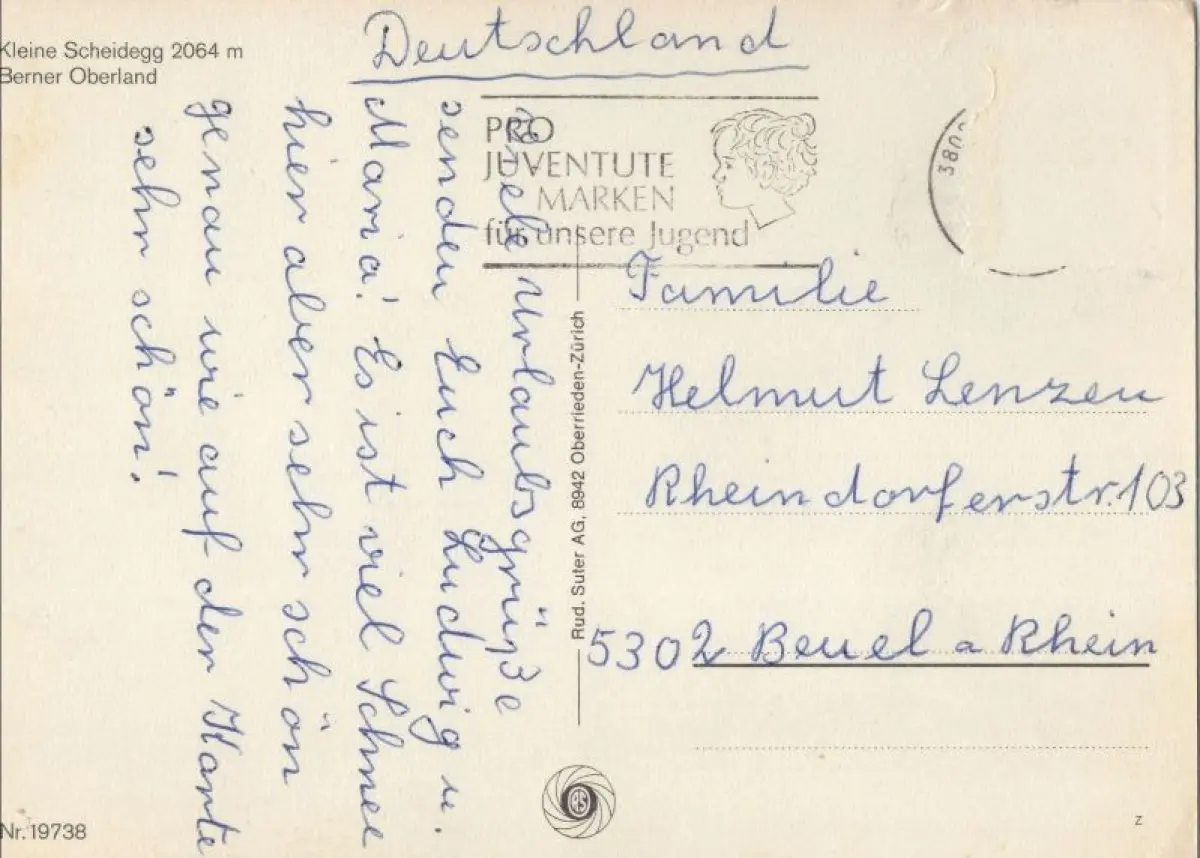 Kleine Scheidegg 2064 m
Berner Oberland
Deutschland
PRO
JUVENTUTE
MARKEN
für unsere Jugend
380
Liebe Urlaubsgrüße
senden Euch Ludwig u.
Maria! Es ist viel Schnee
hier aber sehr schön
genau wie auf der Karte
sehr schön!
Familie
Helmut Lenzen
Rheindorferstr. 103
5302 Beuel a Rhein
Rud. Suter AG, 8942 Oberrieden-Zürich
RS
Nr. 19738
z